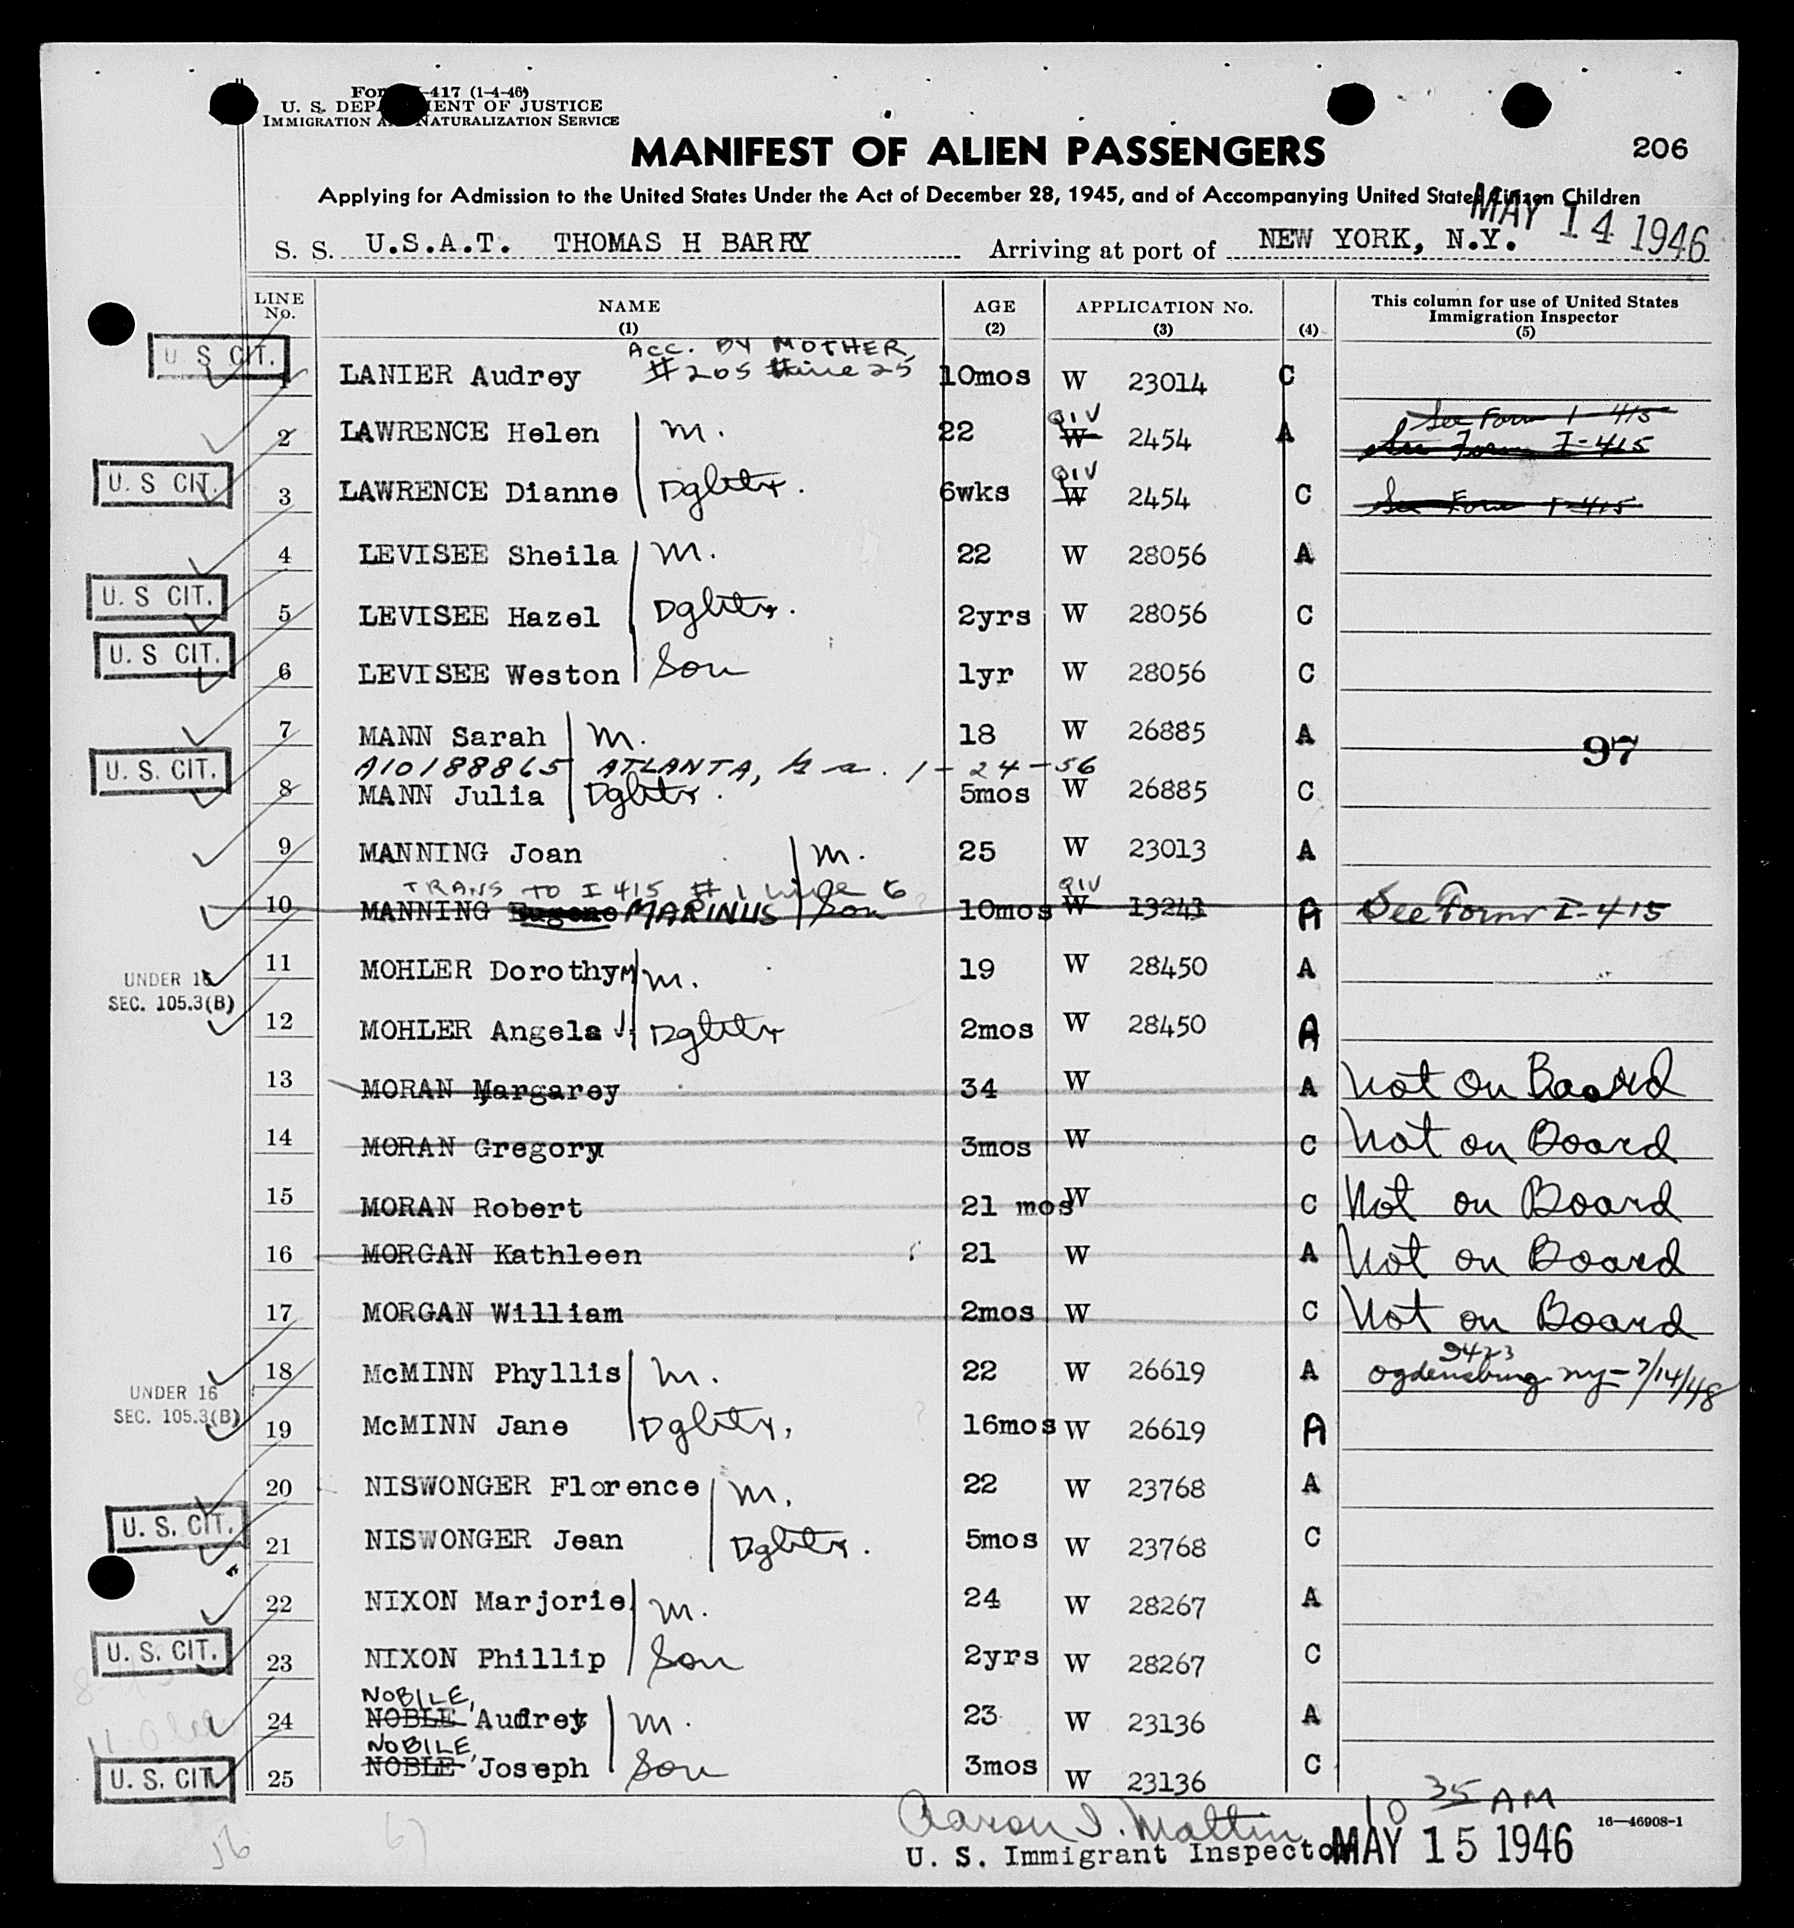 Form I-417 (1-4-46)
U. S. DEPARTMENT OF JUSTICE
IMMIGRATION AND NATURALIZATION SERVICE
MANIFEST OF ALIEN PASSENGERS
206
Applying for Admission to the United States Under the Act of December 28, 1945, and of Accompanying United States Citizen Children
MAY 14 1946
S. S. U.S.A.T. THOMAS H BARRY Arriving at port of NEW YORK, N.Y.
LINE No. NAME (1) AGE (2) APPLICATION No. (3) (4) This column for use of United States Immigration Inspector (5)
ACC. BY MOTHER,
U S CIT. 1 LANIER Audrey #205 #line 25 10mos W 23014 C
QIV See Form I-415
2 LAWRENCE Helen m. 22 W 2454 A See Form I-415
QIV
U. S CIT. 3 LAWRENCE Dianne Dghtr. 6wks W 2454 C See Form I-415
4 LEVISEE Sheila m. 22 W 28056 A
U. S CIT. 5 LEVISEE Hazel Dghtr. 2yrs W 28056 C
U. S CIT. 6 LEVISEE Weston Son 1yr W 28056 C
7 MANN Sarah m. 18 W 26885 A 97
A10188865 ATLANTA, Ga. 1-24-56
U. S. CIT. 8 MANN Julia Dghtr. 5mos W 26885 C
9 MANNING Joan m. 25 W 23013 A
TRANS TO I 415 #1 line 6 QIV
10 MANNING Eugene MARINUS Son 10mos W 13241 A See Form I-415
11 MOHLER Dorothy M m. 19 W 28450 A
UNDER 16
SEC. 105.3(B)
12 MOHLER Angela J. Dghtr 2mos W 28450 A
13 MORAN Margarey 34 W A Not on Board
14 MORAN Gregory 3mos W C Not on Board
15 MORAN Robert 21 mos W C Not on Board
16 MORGAN Kathleen 21 W A Not on Board
17 MORGAN William 2mos W C Not on Board
2423
18 McMINN Phyllis m. 22 W 26619 A Ogdensburg ny - 7/14/48
UNDER 16
SEC. 105.3(B)
19 McMINN Jane Dghtr. 16mos W 26619 A
20 NISWONGER Florence m. 22 W 23768 A
U. S. CIT. 21 NISWONGER Jean Dghtr. 5mos W 23768 C
22 NIXON Marjorie m. 24 W 28267 A
U. S. CIT. 23 NIXON Phillip Son 2yrs W 28267 C
NOBILE,
24 NOBLE Audrey m. 23 W 23136 A
NOBILE,
U. S. CIT. 25 NOBLE Joseph Son 3mos W 23136 C
Aaron I. Maltin 10 35 AM
16—46908-1
U. S. Immigrant Inspector MAY 15 1946
56 67